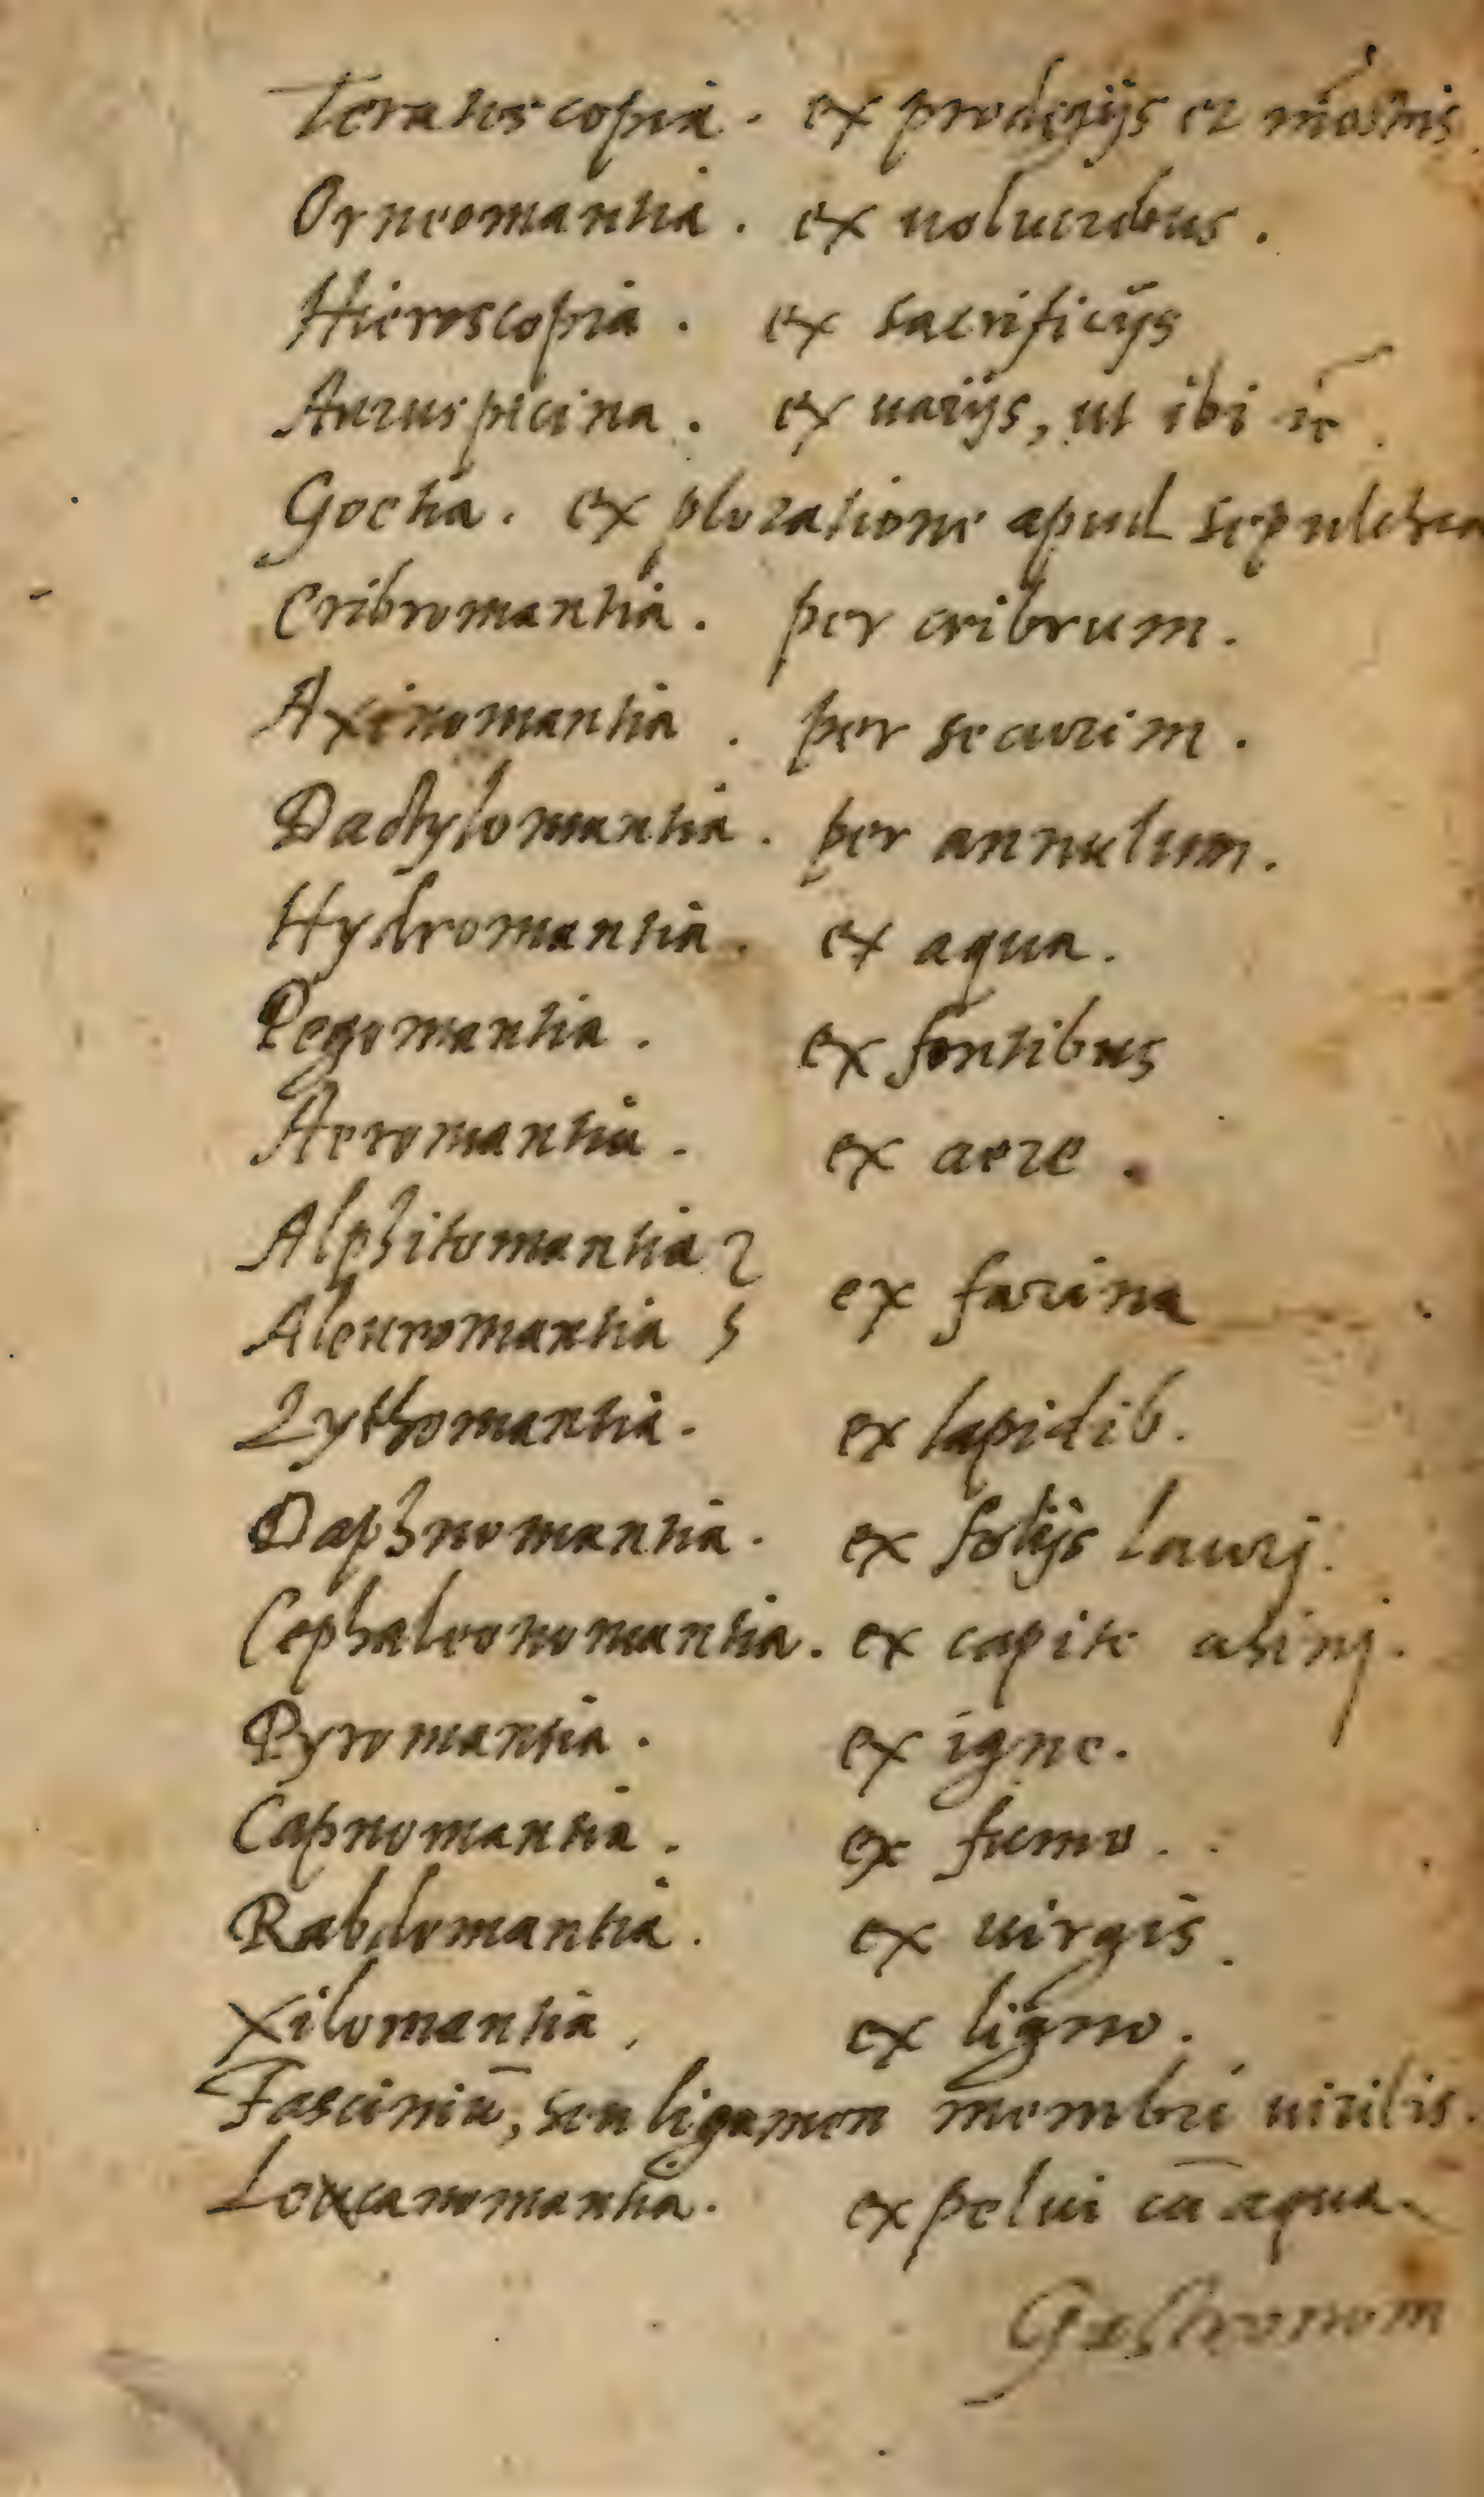 Teratoscopia. ex prodegijs et
Orneomantia. ex uolucribus.
Hieroscopia. ex sacrificijs
Auruspicina. ex uarijs, ut ibi
Goetia. ex ploratione apud sepulchra
Cribromantia. per cribrum.
Axinomantia. per securim.
Dactylomantia. per annulum.
Hydromantia. ex aqua.
Pegomantia. ex fontibus
Aeromantia. ex aere.
Alphitomantia
ex farina
Aleuromantia
Lythomantia. ex lapidib.
Daphnomantia. ex folijs laurj.
Cephaleonomantia. ex capite asinj.
Pyromantia. ex igne.
Capnomantia. ex fumo.
Rabdomantia. ex uirgis.
Xilomantia, ex ligno.
Fasciniū, seu ligamen membri uirilis.
ex pelui cū aqua.
Gastronom